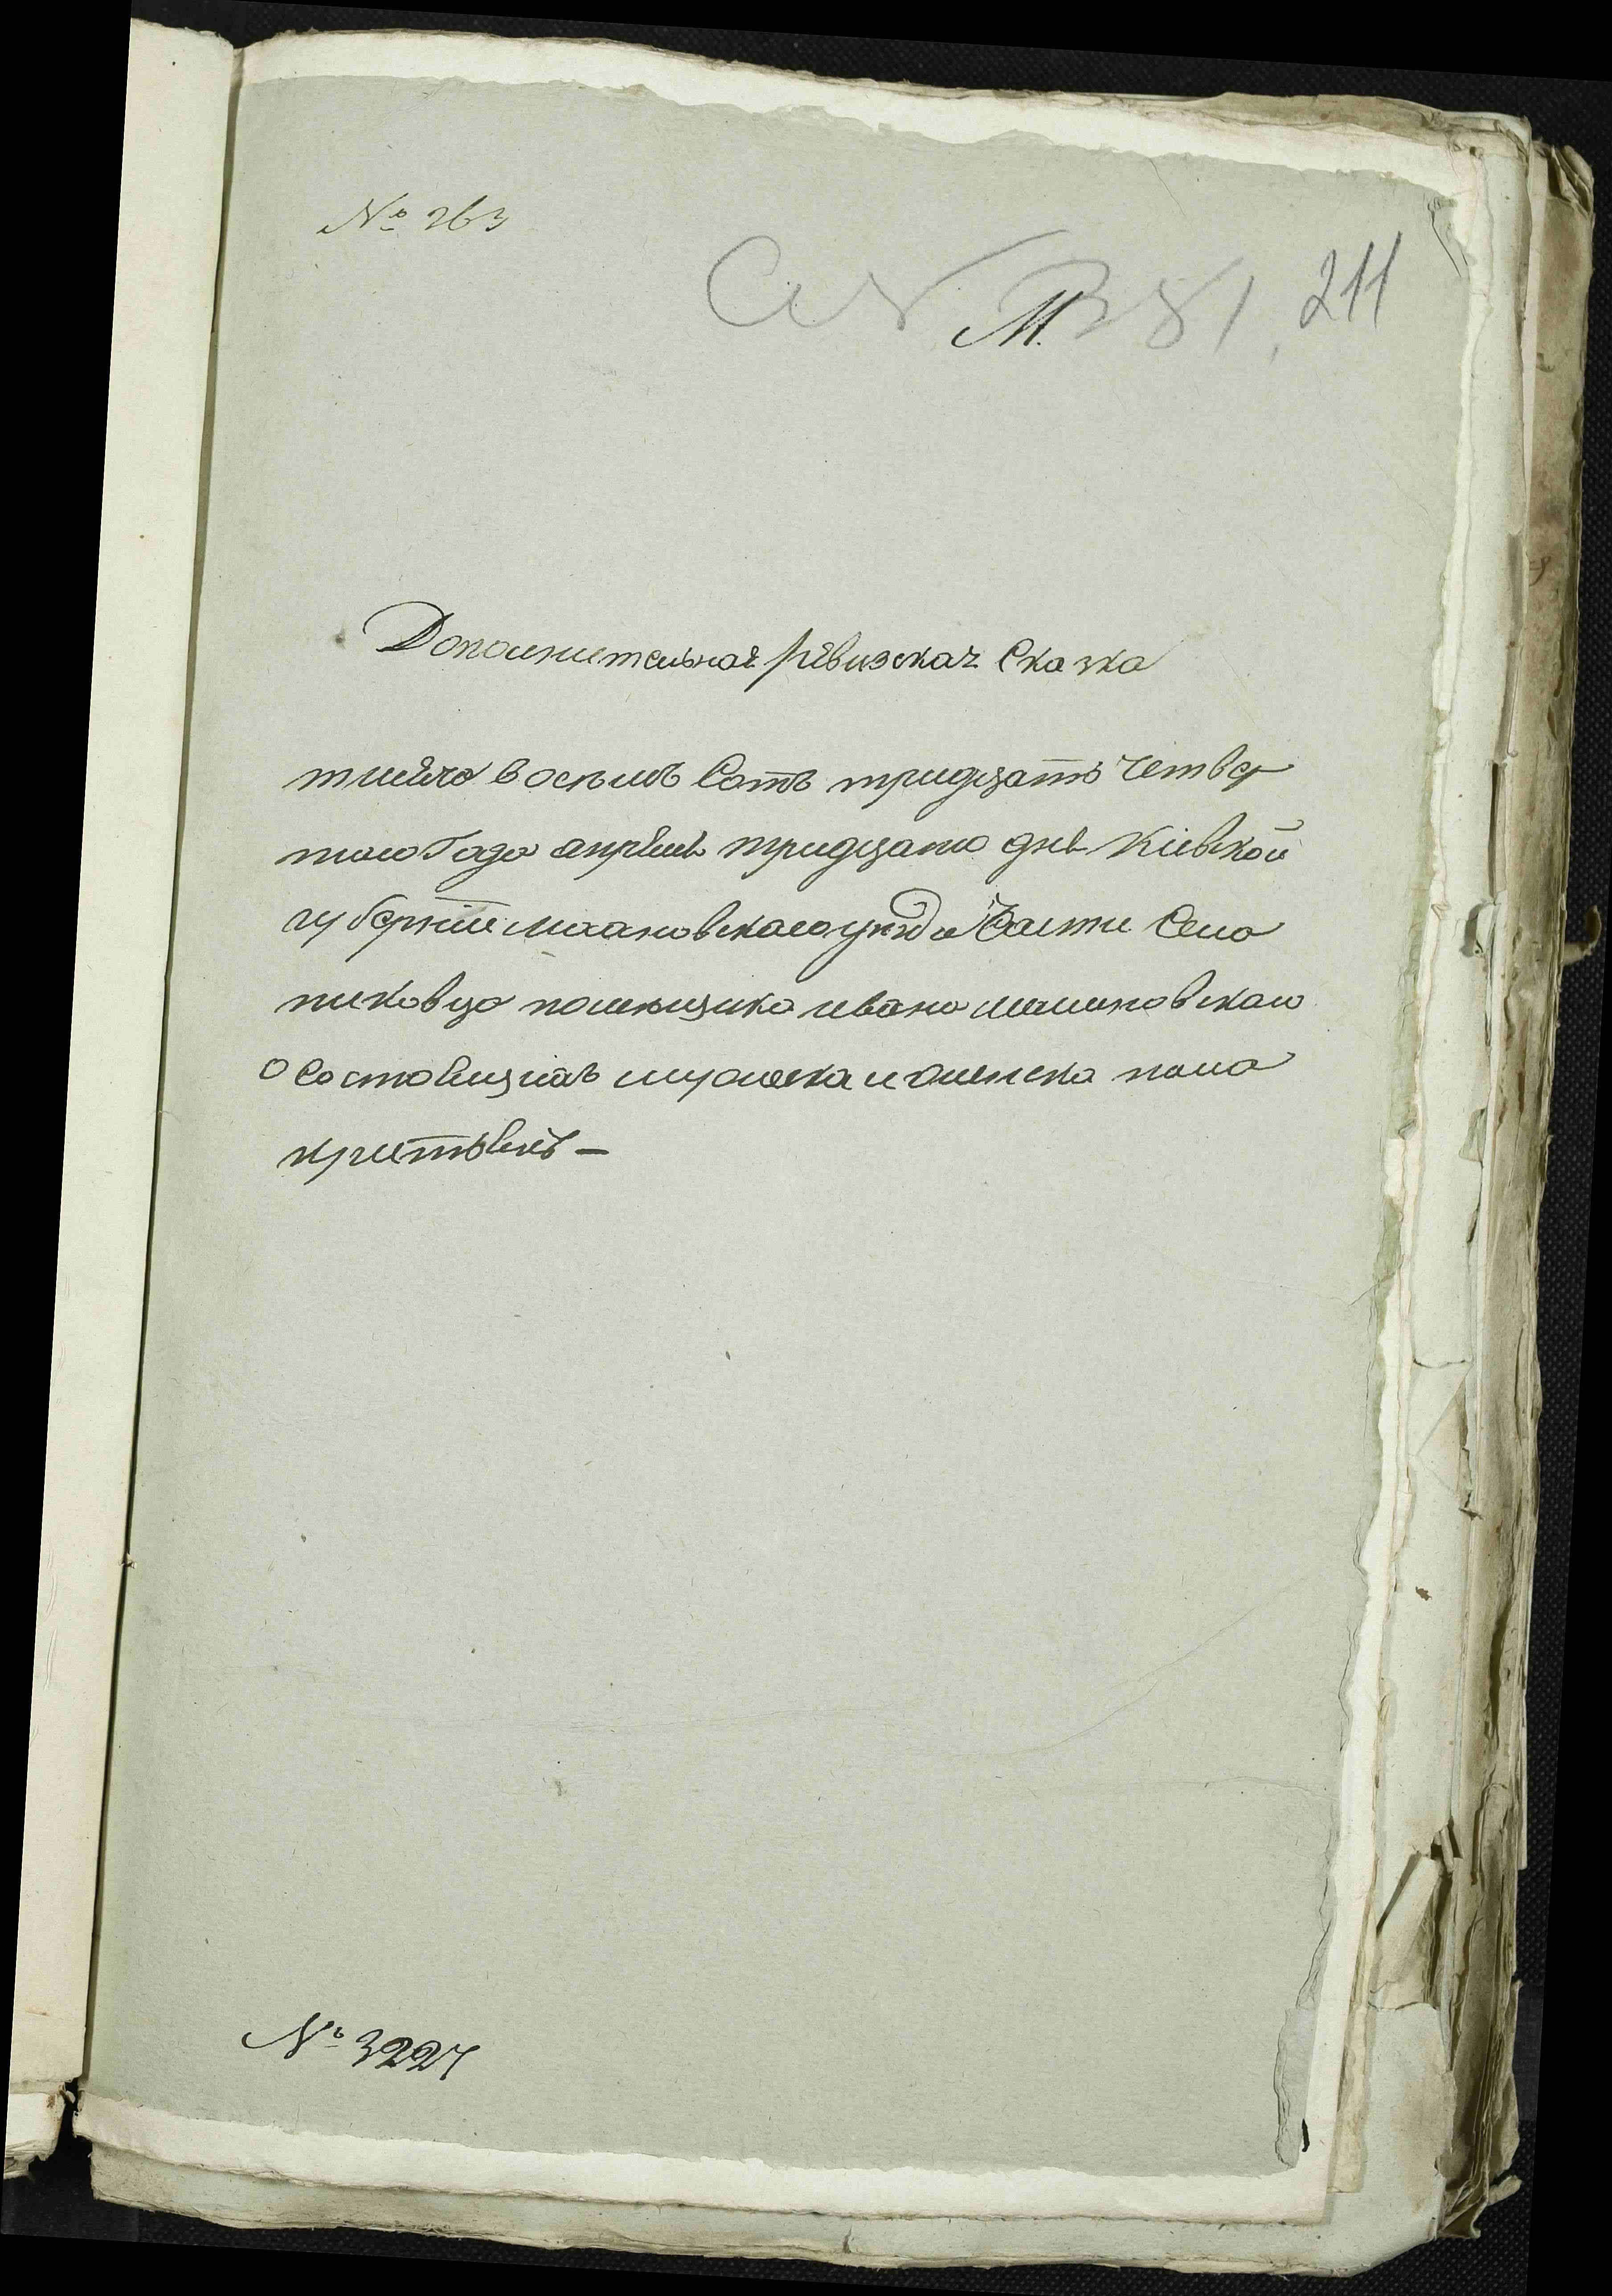 № 263
М. 381 211
Дополнительная ревизская Сказка
тисйчо восъмъ Сотъ тридцатъ Четвер
того Года апреля тридцато дня Киевской
губернии махновского уезда Части Села
пиковца помещика ивана малиновскаго
о Состоящихъ мужеска и женска пола
крестьянъ –
№ 3227